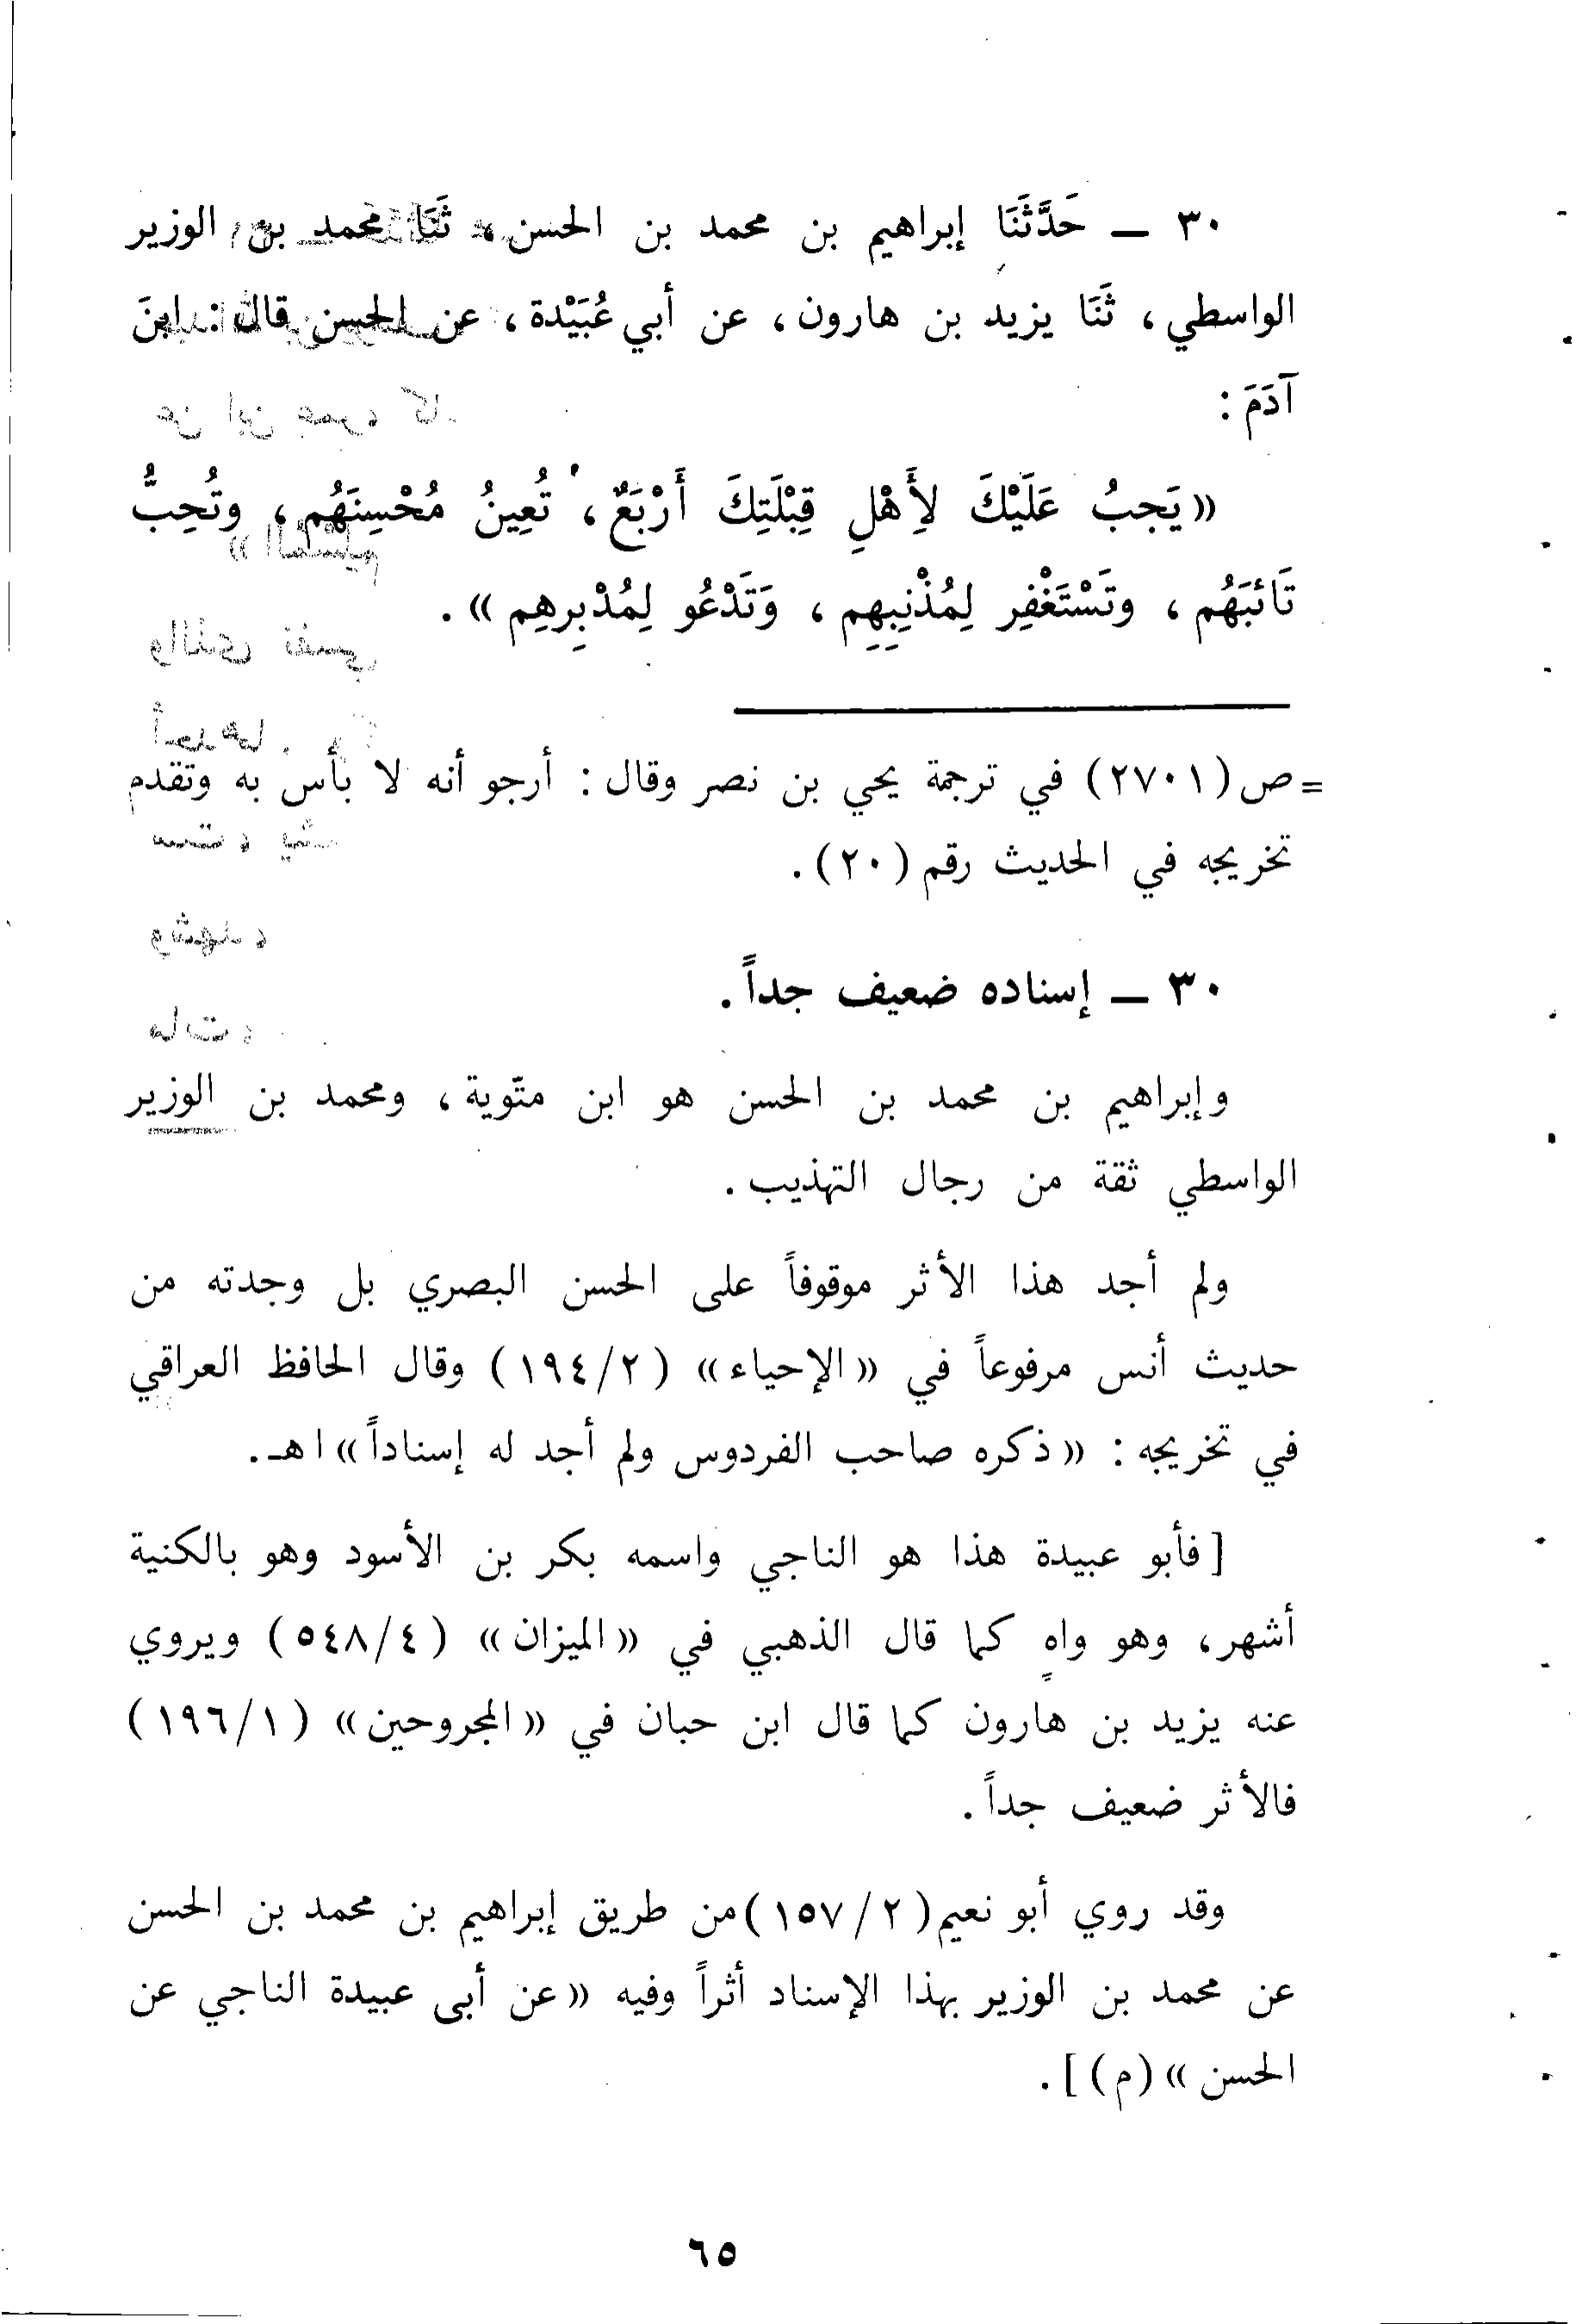 ٣٠ ــ حَدَّثَنَا إبراهيم بن محمد بن الحسن، ثَنَا محمد بن الوزير
الواسطي، ثَنَا يزيد بن هارون، عن أبي عُبَيْدة، عن الحسن قال: ابنَ
آدَمَ:
«يَجبُ عَلَيْكَ لأَهْلِ قِبْلَتِكَ أَرْبَعٌ، تُعِينُ مُحْسِنَهُم، وتُحِبُّ
تَائبَهُم، وتَسْتَغْفِر لِمُذْنِبِهِم، وَتَدْعُو لِمُدْبِرِهِم».
= ص (٢٧٠١) في ترجمة يحي بن نصر وقال: أرجو أنه لا بأس به وتقدم
تخريجه في الحديث رقم (٢٠).
٣٠ ــ إسناده ضعيف جداً.
وإبراهيم بن محمد بن الحسن هو ابن متّوية، ومحمد بن الوزير
الواسطي ثقة من رجال التهذيب.
ولم أجد هذا الأثر موقوفاً على الحسن البصري بل وجدته من
حديث أنس مرفوعاً في «الإحياء» (١٩٤/٢) وقال الحافظ العراقي
في تخريجه: «ذكره صاحب الفردوس ولم أجد له إسناداً» اهـ.
[فأبو عبيدة هذا هو الناجي واسمه بكر بن الأسود وهو بالكنية
أشهر، وهو واهٍ كما قال الذهبي في «الميزان» (٥٤٨/٤) ويروي
عنه يزيد بن هارون كما قال ابن حبان في «المجروحين» (١٩٦/١)
فالأثر ضعيف جداً.
وقد روي أبو نعيم (١٥٧/٢) من طريق إبراهيم بن محمد بن الحسن
عن محمد بن الوزير بهذا الإسناد أثراً وفيه «عن أبى عبيدة الناجي عن
الحسن» (م)].
٦٥